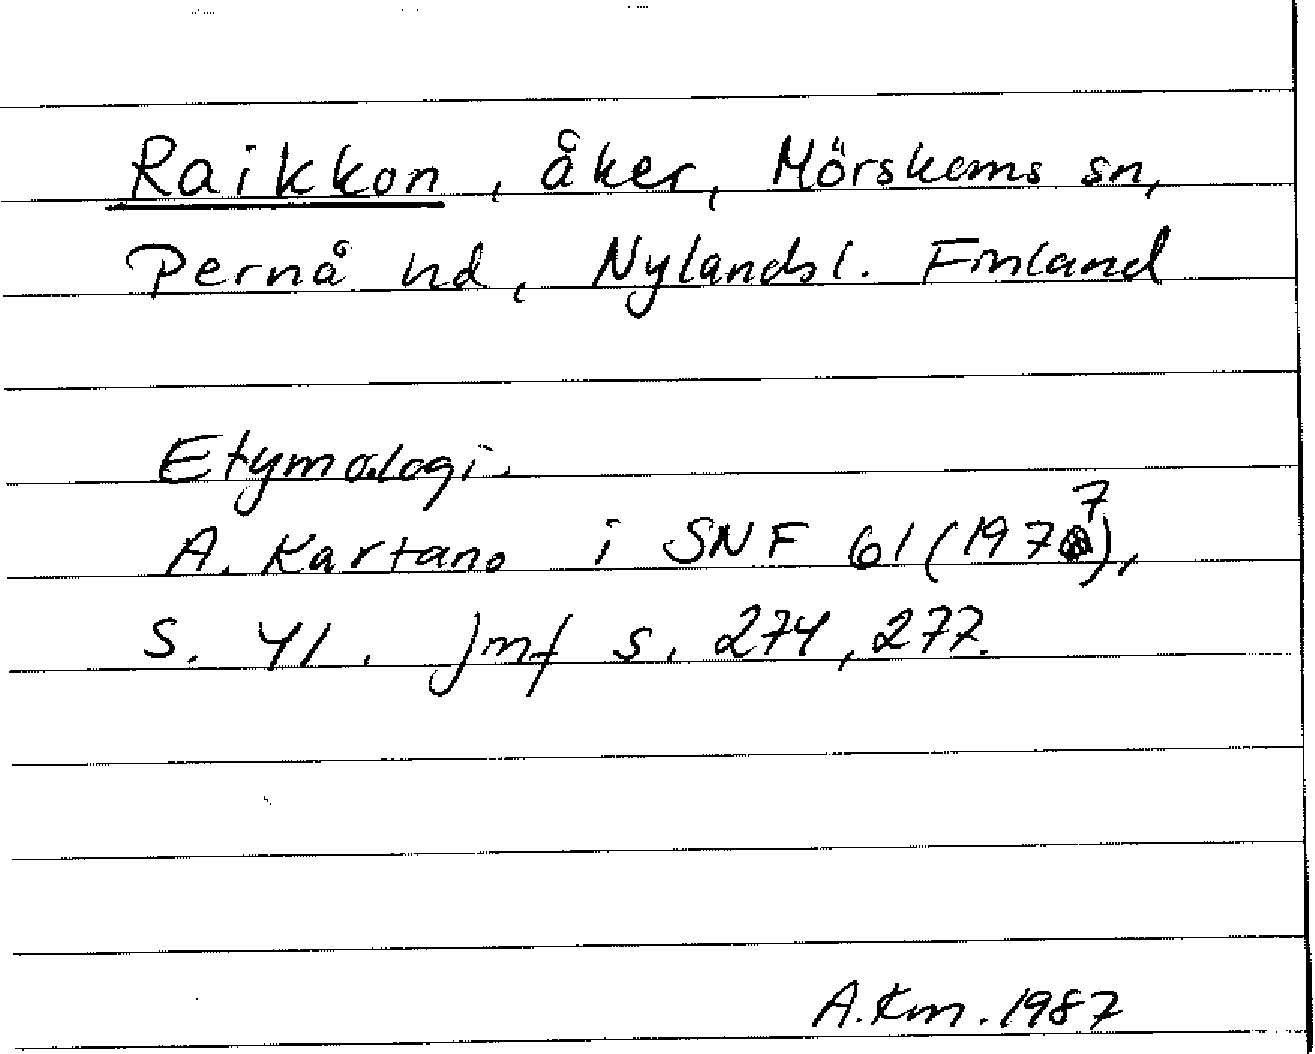 Raikkon, åker, Mörskoms sn,
Pernå hd, Nylands l. Finland
Etymologi.
A. Kartano i SNF 61 (1977),
s. 41. Jmf s. 274, 277.
A.Km. 1987